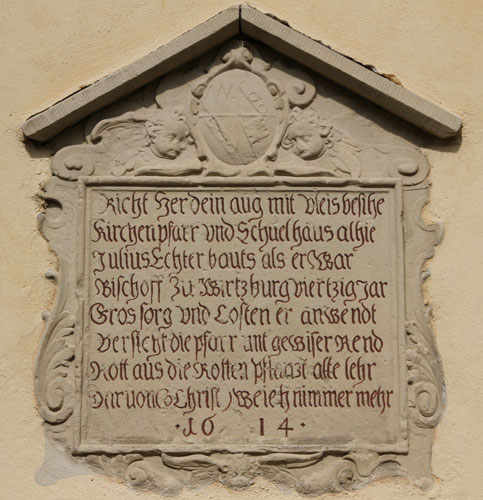 Richt Her dein aug mit Vleis besihe
Kirchen pfarr vnd Schuel haus alhie
Julius Echter bauts als er War
Bischoff Zu Wirtzburg viertzig Jar
Gros sorg vnd Costen er anwendt
Versieht die pfarr mit gewiser Rend
Rott aus die Rotten pflantzt alte lehr
Daruon Christ nimmer mehr
·16 14·